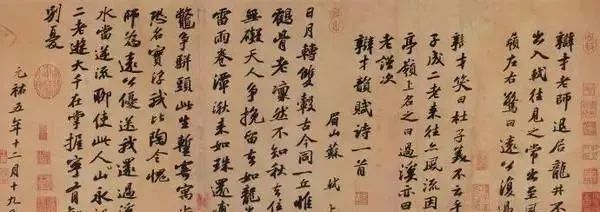 辯才老師退居龍井不
出入軾往見之常出至風
嶺左右驚曰遠公復過
辯才笑曰杜子美不云乎
子成二老來往亦風流因
亭嶺上名之曰過溪亦曰
老謹次
辯才韻賦詩一首
眉山蘇軾上
日月轉雙轂古今同一丘惟
鶴骨老凜然不知秋去住
無礙天人爭挽留去如龍
雷雨卷潭湫來如珠還
鱉爭駢頭此生暫寄寓
恐名實浮我比陶令愧
師為遠公優送我還過溪
水當逆流聊使此人山永記
二老遊大千在掌握寧有
別憂
元祐五年十二月十九日